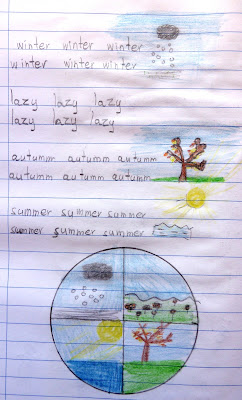 winter winter winter
winter winter winter
lazy lazy lazy
lazy lazy lazy
autumm autumm autumm
autumm autumm autumm
summer summer summer
summer summer summer